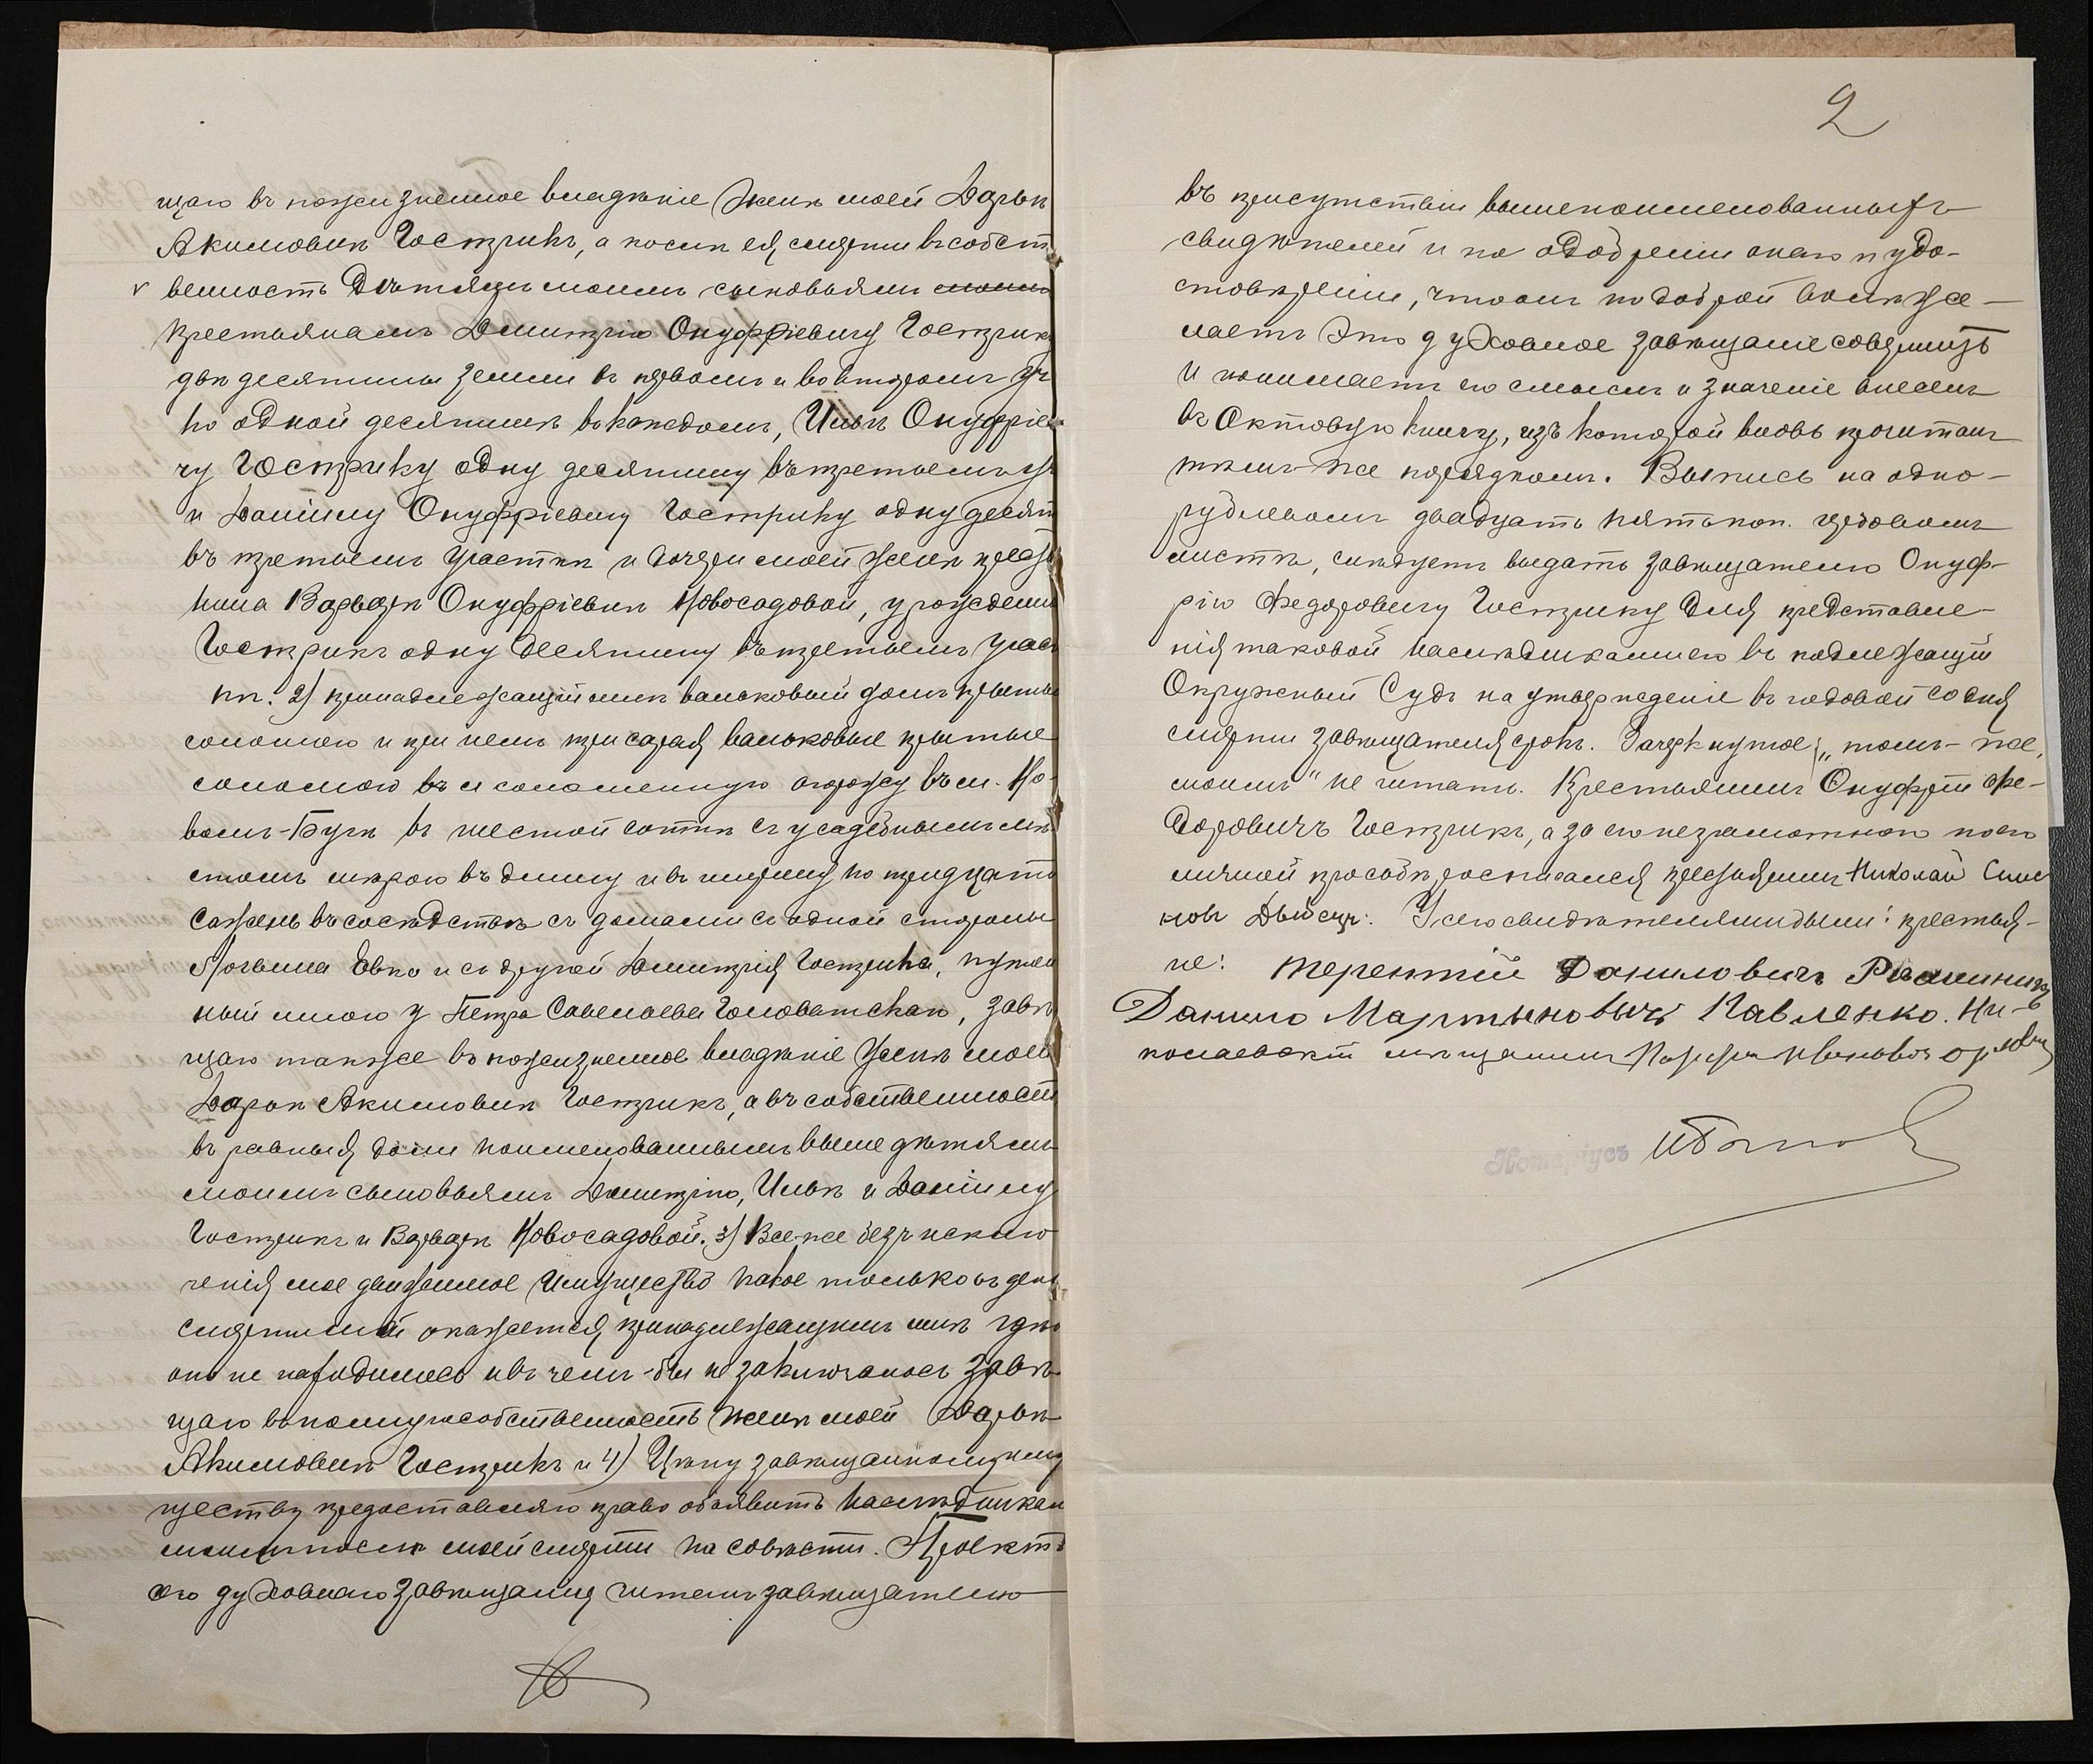 щаю въ пожизненное владѣніе женѣ моей Дарьѣ
Акимовнѣ Гострикъ, а послѣ ея смерти въ собст
венность дѣтямъ моимъ сыновьямъ моимъ
крестьянамъ Дмитрію Онуфріевичу Гострику
двѣ десятины земли въ первомъ и во второмъ уч
по одной десятинѣ въ каждомъ, Ильѣ Онуфріе
чу Гострику одну десятину въ третьемъ уч
и Даніилу Онуфріевичу Гострику одну десят
въ третьемъ участкѣ и дочери моей женѣ крестья
нина Варварѣ Онуфріевнѣ Новосадовой, урожденн
Гострикъ одну десятину въ третьемъ учас
кѣ. 2) принадлежащій мнѣ вальковый домъ крытый
соломою и при немъ при сарая вальковые крытые
соломою въ и соломенную огорожу въ м. Но-
вомъ-Бугѣ въ шестой сотнѣ съ усадебнымъ мѣ
стомъ мѣрою въ длину и въ ширину по тридцать
сажень въ сосѣдствѣ съ домами съ одной стороны
Логвина Евко и съ другой Дмитрія Гострика, куплен
ный мною у Петра Савельева Головатскаго, завѣ
щаю также въ пожизненное владѣніе женѣ моей
Дарьѣ Акимовнѣ Гострикъ, а въ собственность
въ равныя доли поименованнымъ выше дѣтямъ
моимъ сыновьямъ Дмитрію, Ильѣ и Даніилу
Гострикъ и Варварѣ Новосадовой. 3) Все-же безъ исклю
ченія мое движимое имущество какое только въ день
смерти моей окажется, принадлежащимъ мнѣ гдѣ
оно не находилось и въ чемъ-бы не заключалось завѣ
щаю въ полную собственность женѣ моей Дарьѣ
Акимовнѣ Гострикъ и 4) Цѣну завѣщанному иму
ществу предоставляю право объявить наслѣдникам
моимъ послѣ моей смерти по совѣсти. Проектъ
его духовнаго завѣщанія читанъ завѣщателю
2
въ присутствіи вышепоименованныхъ
свидѣтелей и по одобреніи онаго и удо-
стовѣреніи, что онъ по доброй волѣ же-
лаетъ это духовное завѣщаніе совершить
и понимаетъ его смыслъ и значеніе внесенъ
въ актовую книгу, изъ которой вновь прочитанъ
тѣмъ-же порядкомъ. Выпись на одно-
рублевомъ двадцать пять коп. гербовомъ
листѣ, слѣдуетъ выдать завѣщателю Онуф-
рію Федоровичу Гострику для представле-
нія таковой наслѣдниками его въ подлежащій
Окружный Судъ на утвержденіе въ годовой со дня
смерти завѣщателя срокъ. Зачеркнутое: „томъ-же,
моимъ" не читать. Крестьянинъ Онуфрій Фе-
доровичъ Гострикъ, а за его неграмотною по его
личной просьбѣ росписался крестьянинъ Николай Симо
новъ У сего свидѣтелями были: крестья-
не: Терентій Даниловичъ
Данило Мартыновичъ Павленко. Ни-
колаевскій мѣщанинъ Ивановъ
Нотаріусъ